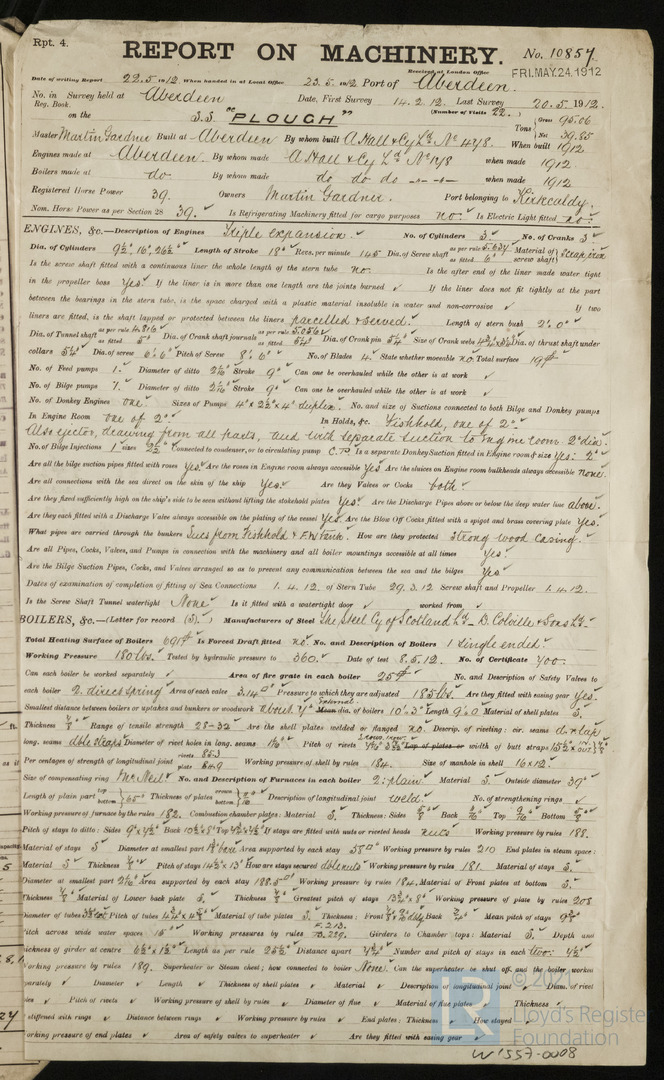 Rpt. 4.
REPORT ON MACHINERY. No. 10857
Received at London Office FRI. MAY. 24. 1912
Date of writing Report 22.5.1912 When handed in at Local Office 23.5.1912 Port of Aberdeen.
No. in Reg. Book. Survey held at Aberdeen Date, First Survey 14.2.12. Last Survey 20.5.1912.
on the S.S. "PLOUGH" (Number of Visits 22.)
Tons Gross 95.06 Net 39.85
Master Martin Gardner Built at Aberdeen By whom built A Hall & Coy Ld. No 498. When built 1912
Engines made at Aberdeen. By whom made A Hall & Cy Ld. when made 1912
Boilers made at do. By whom made do do do when made 1912
Registered Horse Power 39. Owners Martin Gardner. Port belonging to Kirkcaldy.
Nom. Horse Power as per Section 28 39. Is Refrigerating Machinery fitted for cargo purposes no. Is Electric Light fitted no.
ENGINES, &c.—Description of Engines Triple expansion. No. of Cylinders 3 No. of Cranks 3
Dia. of Cylinders 9½", 16", 26½" Length of Stroke 18" Revs. per minute 145 Dia. of Screw shaft as per rule 5.634 as fitted 6" Material of screw shaft scrap iron
Is the screw shaft fitted with a continuous liner the whole length of the stern tube no. Is the after end of the liner made water tight
in the propeller boss Yes. If the liner is in more than one length are the joints burned If the liner does not fit tightly at the part
between the bearings in the stern tube, is the space charged with a plastic material insoluble in water and non-corrosive If two
liners are fitted, is the shaft lapped or protected between the liners parcelled & served. Length of stern bush 2'.0"
Dia. of Tunnel shaft as per rule 4.816 as fitted 5" Dia. of Crank shaft journals as per rule 5.056 as fitted 5¼" Dia. of Crank pin 5¼" Size of Crank webs Dia. of thrust shaft under
collars 5¼" Dia. of screw 6'.6" Pitch of Screw 8'.6" No. of Blades 4. State whether moveable no. Total surface 19
No. of Feed pumps 1. Diameter of ditto Stroke 9" Can one be overhauled while the other is at work
No. of Bilge pumps 1. Diameter of ditto Stroke 9" Can one be overhauled while the other is at work
No. of Donkey Engines one. Sizes of Pumps 4" x 2½" x 4" duplex. No. and size of Suctions connected to both Bilge and Donkey pumps
In Engine Room one of 2". In Holds, &c. Fishhold, one of 2".
Also ejector, drawing from all parts, and with separate suction to engine room 2" dia.
No. of Bilge Injections 1 sizes 2½" Connected to condenser, or to circulating pump C.P. Is a separate Donkey Suction fitted in Engine room & size Yes: 2"
Are all the bilge suction pipes fitted with roses Yes. Are the roses in Engine room always accessible Yes. Are the sluices on Engine room bulkheads always accessible none.
Are all connections with the sea direct on the skin of the ship Yes. Are they Valves or Cocks both.
Are they fixed sufficiently high on the ship's side to be seen without lifting the stokehold plates Yes. Are the Discharge Pipes above or below the deep water line above.
Are they each fitted with a Discharge Valve always accessible on the plating of the vessel Yes. Are the Blow Off Cocks fitted with a spigot and brass covering plate Yes.
What pipes are carried through the bunkers Sucs from Fishhold & F.W tank. How are they protected strong wood casing.
Are all Pipes, Cocks, Valves, and Pumps in connection with the machinery and all boiler mountings accessible at all times Yes.
Are the Bilge Suction Pipes, Cocks, and Valves arranged so as to prevent any communication between the sea and the bilges Yes
Dates of examination of completion of fitting of Sea Connections 1.4.12. of Stern Tube 29.3.12 Screw shaft and Propeller 1.4.12
Is the Screw Shaft Tunnel watertight None Is it fitted with a watertight door worked from
BOILERS, &c.—(Letter for record (S).) Manufacturers of Steel The Steel Cy of Scotland Ld. - D. Colville & Sons Ld.
Total Heating Surface of Boilers 691 Is Forced Draft fitted no. No. and Description of Boilers 1 single ended.
Working Pressure 180 lbs. Tested by hydraulic pressure to 360. Date of test 8.5.12. No. of Certificate 700.
Can each boiler be worked separately Area of fire grate in each boiler 25 No. and Description of Safety Valves to
each boiler 2. direct spring Area of each valve 3.14 Pressure to which they are adjusted 185 lbs. Are they fitted with easing gear Yes.
Smallest distance between boilers or uptakes and bunkers or woodwork about 7" Mean external dia. of boilers 10'.3" Length 9'.0" Material of shell plates S.
Thickness Range of tensile strength 28-32 Are the shell plates welded or flanged no. Descrip. of riveting: cir. seams d.r. lap
long. seams dble straps Diameter of rivet holes in long. seams Pitch of rivets Lap of plates or width of butt straps
Per centages of strength of longitudinal joint rivets 88.3 plate 84.9 Working pressure of shell by rules 184. Size of manhole in shell 16" x 12"
Size of compensating ring McNeil. No. and Description of Furnaces in each boiler 2: plain. Material S. Outside diameter 39"
Length of plain part top bottom 65" Thickness of plates crown bottom Description of longitudinal joint weld. No. of strengthening rings
Working pressure of furnace by the rules 182. Combustion chamber plates: Material S. Thickness: Sides Back Top Bottom
Pitch of stays to ditto: Sides Back Top If stays are fitted with nuts or riveted heads nuts Working pressure by rules 188.
Material of stays S Diameter at smallest part Area supported by each stay Working pressure by rules 210 End plates in steam space:
Material S Thickness Pitch of stays 14½" x 13" How are stays secured dble nuts Working pressure by rules 181. Material of stays S.
Diameter at smallest part Area supported by each stay 188.5 Working pressure by rules 184. Material of Front plates at bottom S.
Thickness Material of Lower back plate S. Thickness Greatest pitch of stays Working pressure of plate by rules 208
Diameter of tubes Pitch of tubes Material of tube plates S. Thickness: Front Back ¾" Mean pitch of stays
Pitch across wide water spaces 15" Working pressures by rules F.213. B.229. Girders to Chamber tops: Material S. Depth and
thickness of girder at centre Length as per rule 25½" Distance apart Number and pitch of stays in each two: 7½"
Working pressure by rules 189. Superheater or Steam chest; how connected to boiler None. Can the superheater be shut off and the boiler worked
separately Diameter Length Thickness of shell plates Material Description of longitudinal joint Diam. of rivet
holes Pitch of rivets Working pressure of shell by rules Diameter of flue Material of flue plates Thickness
If stiffened with rings Distance between rings Working pressure by rules End plates: Thickness How stayed
Working pressure of end plates Area of safety valves to superheater Are they fitted with easing gear
© 2021
LR
Lloyd's Register
Foundation
W1557-0008